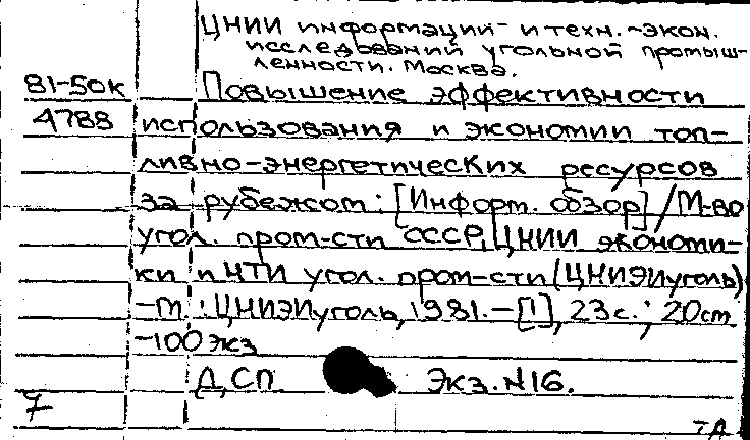 ЦНИИ информаций и техн.-экон.
исследований угольной промыш-
ленности. Москва.
81-50к Повышение эффективности
4788 использования и экономии топ-
ливно-энергетических ресурсов
за рубежом: [Информ. обзор] / М-во
угол. пром-сти СССР, ЦНИИ экономи-
ки и НТИ угол. пром-сти (ЦНИЭИуголь)
-М.: ЦНИЭИуголь, 1981.-[1], 23с.; 20cm
-100 экз
ДСП. Экз. N16.
7